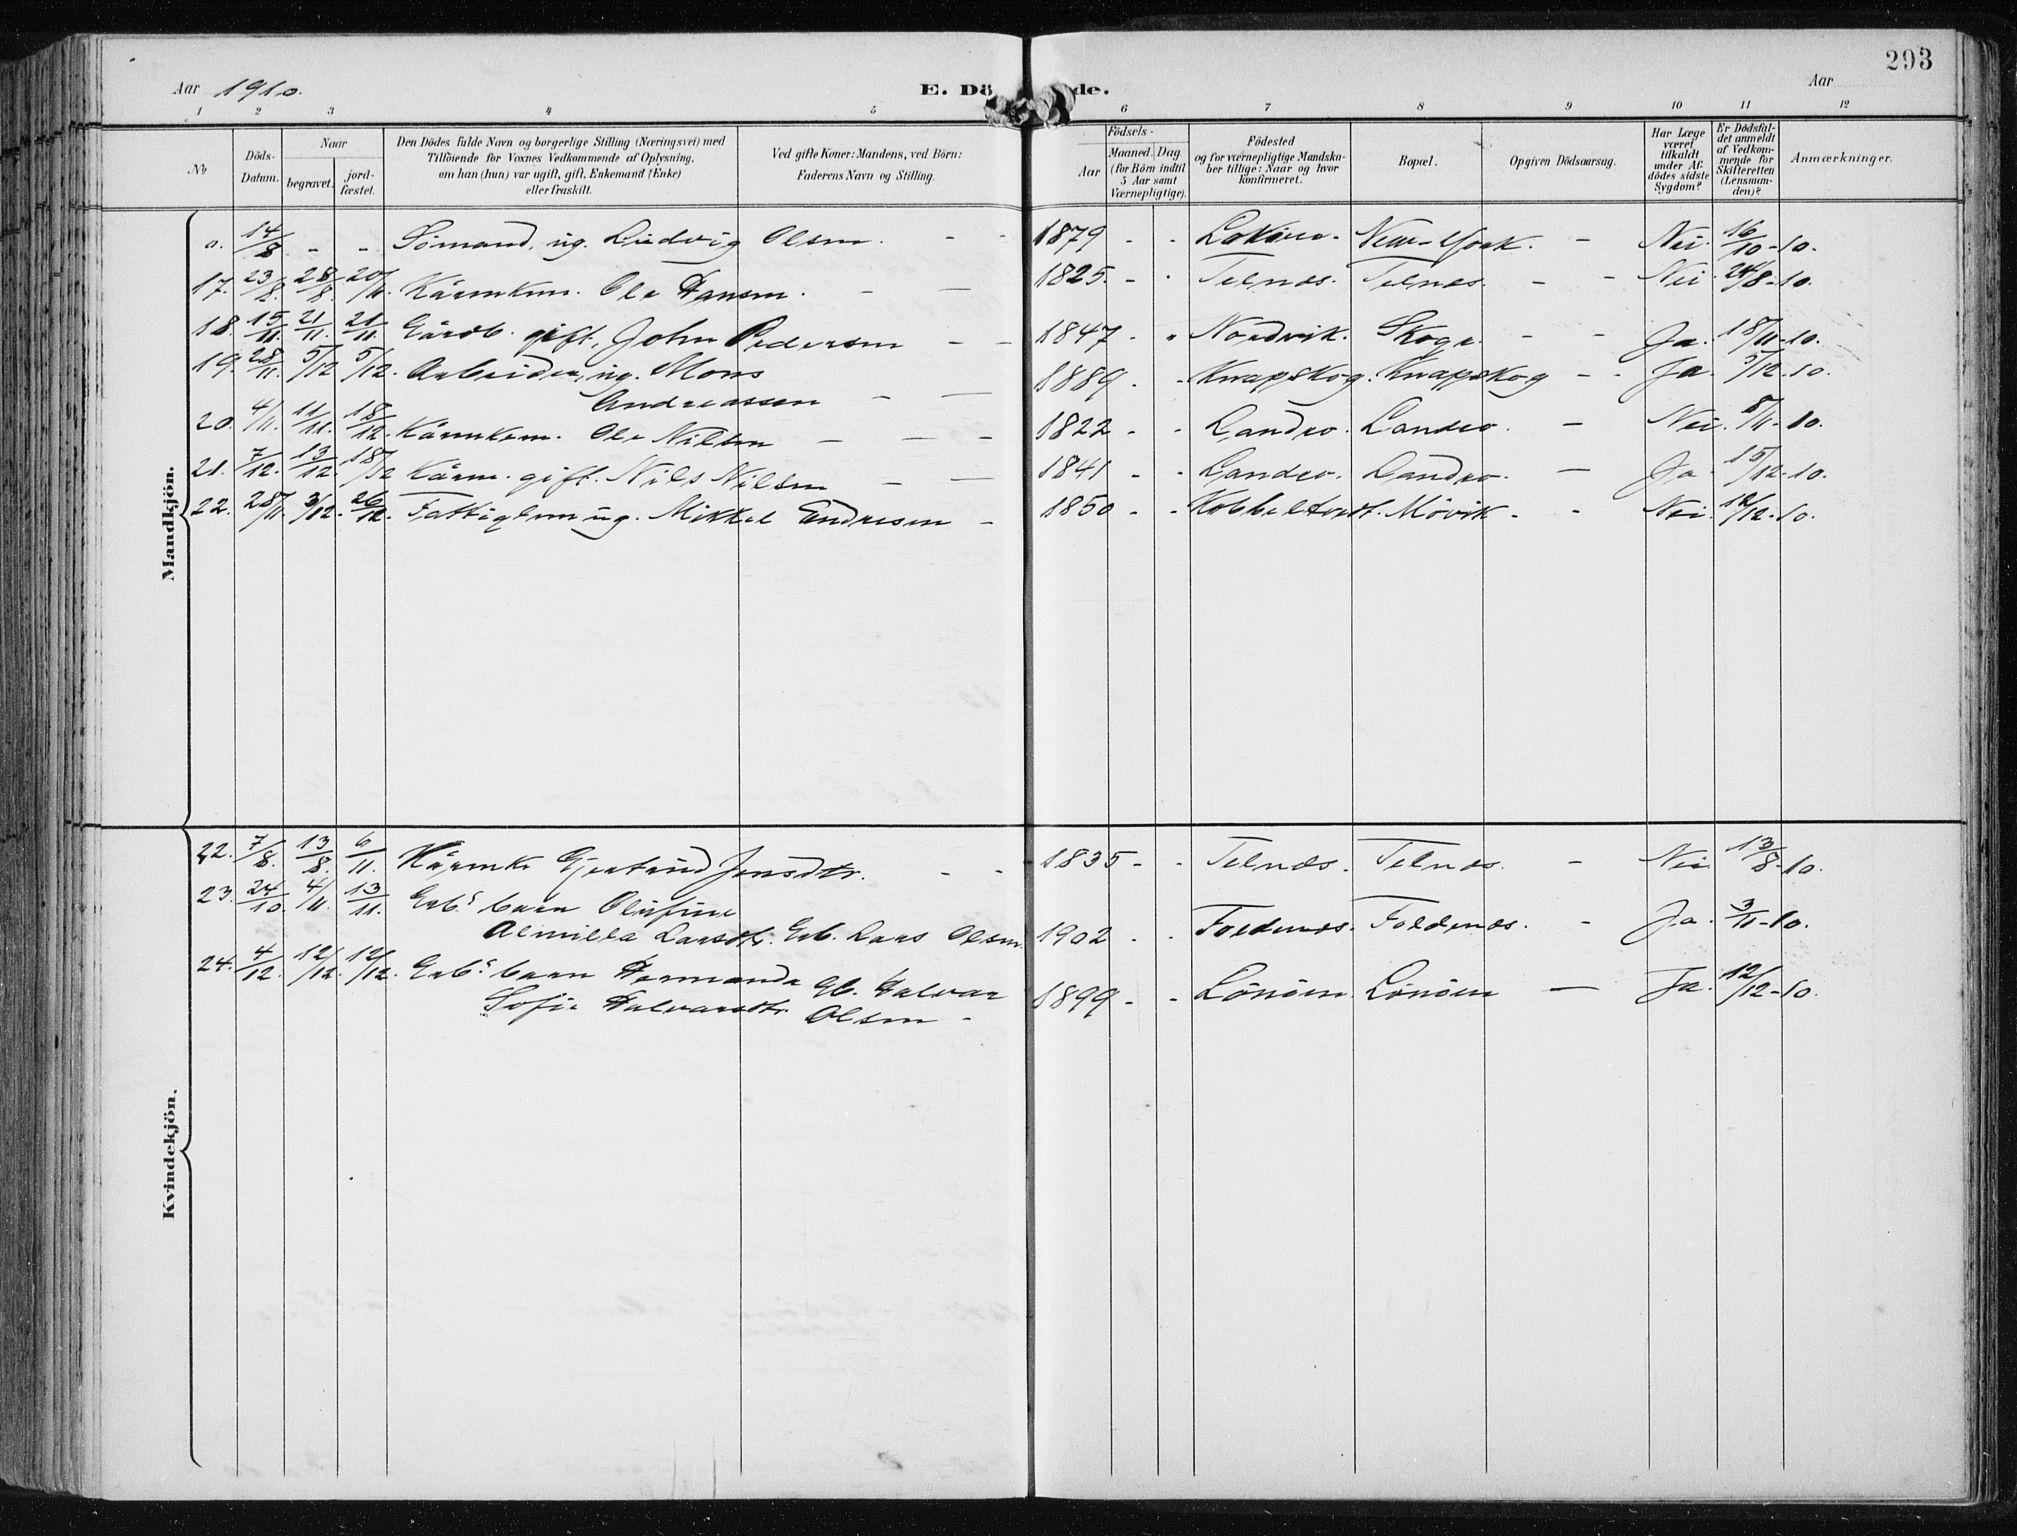 293
Aar 1910. E. Dö de. Aar
1 2 3 4 5 6 7 8 9 10 11 12
No
Döds-Datum.
Naar
begravet.
jord-fæstet.
Den Dödes fulde Navn og borgerlige Stilling (Næringsvei) med
Tilföiende for Voxnes Vedkommende af Oplysning,
om han (hun) var ugift, gift, Enkemand (Enke)
eller fraskilt.
Ved gifte Koner: Mandens, ved Börn:
Faderens Navn og Stilling.
Födsels-
Aar
Maaned. Dag.
(for Börn indtil
5 Aar samt
Værnepligtige).
Födested
og for værnepligtige Mandska-
ber tillige: Naar og hvor
konfirmeret.
Bopæl.
Opgiven Dödsaarsag.
Har Læge
været
tilkaldt
under Af-
dödes sidste
Sygdom?
Er Dödsfal-
det anmeldt
af Vedkom-
mende for
Skifteretten
(Lensman-
den)?
Anmærkninger.
Mandkjön.
a. 14/8 - - Sömand, ug. Ludvig Olsen. - - 1879 - - Loköen. New-York. - Nei. 16/10-10.
17. 23/8. 28/8. 20/11 Kårmkem. Ole Hansen. - - 1825. - - Telnæs. Telnæs. - - Nei 24/8-10.
18. 15/11. 21/11. 21/11. Gårdb. gift, John Pedersen - - 1847 - - Nordvik. Skoge. - - Ja. 18/11-10.
19. 28/11. 5/12 5/12. Arbeider, ug. Mons
Andreassen - - 1889. - - Knapskog. Knapskog - - Ja. 5/12-10.
20. 4/11. 11/11. 18/12. Kårmkem. Ole Nilsen - - - 1822 - - Landro. Landro. - Nei. 8/11-10.
21. 7/12. 13/12 18/12 Kårm. gift. Nils Nilsen - - 1841 - - Landro. Landro. - Ja - 15/12-10.
22. 28/11. 3/12. 26/12. Fattiglem ug. Mikkel Endresen - 1850 - - Kobbeltvedt. Mövik - - Nei. 12/12-10.
Kvindekjön.
22. 7/8. 13/8. 6/11. Kårmke Gjertrud Jensdtr. - - 1835 - - Telnæs. Telnæs. - Nei 13/8-10.
23. 24/10. 4/11. 13/11. Grbs barn Olufine
Almilla Larsdtr. Grb. Lars Olsen. 1902 - - Foldenæs. Foldenæs. - Ja. 3/11-10.
24. 4/12. 12/12. 12/12. Grbs barn Hermanda Gb. Halvar
Sofie Halvarsdtr. Olsen - 1899 - - Lönöen. Lönöen - Ja. 12/12-10.